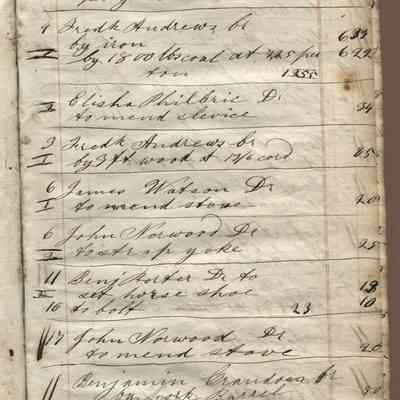 4 Fredk Andrews br 6 33
by iron
by 1800 lbs coal at 725 per 6 22
ton 1355
Elisha Philbric Dr
to mend slevice 34
3 Fredk Andrews br
by 3 ft wood at cord 65
6 James Watson Dr
I to mend stove 20
6 John Norwood Dr
to strap yoke 25
11 Benj Porter Dr to
set horse shoe 18
16 to bolt 23 10
17 John Norwood Dr
to mend stove 20
11 Benjamin br
by Pork Barrel 50